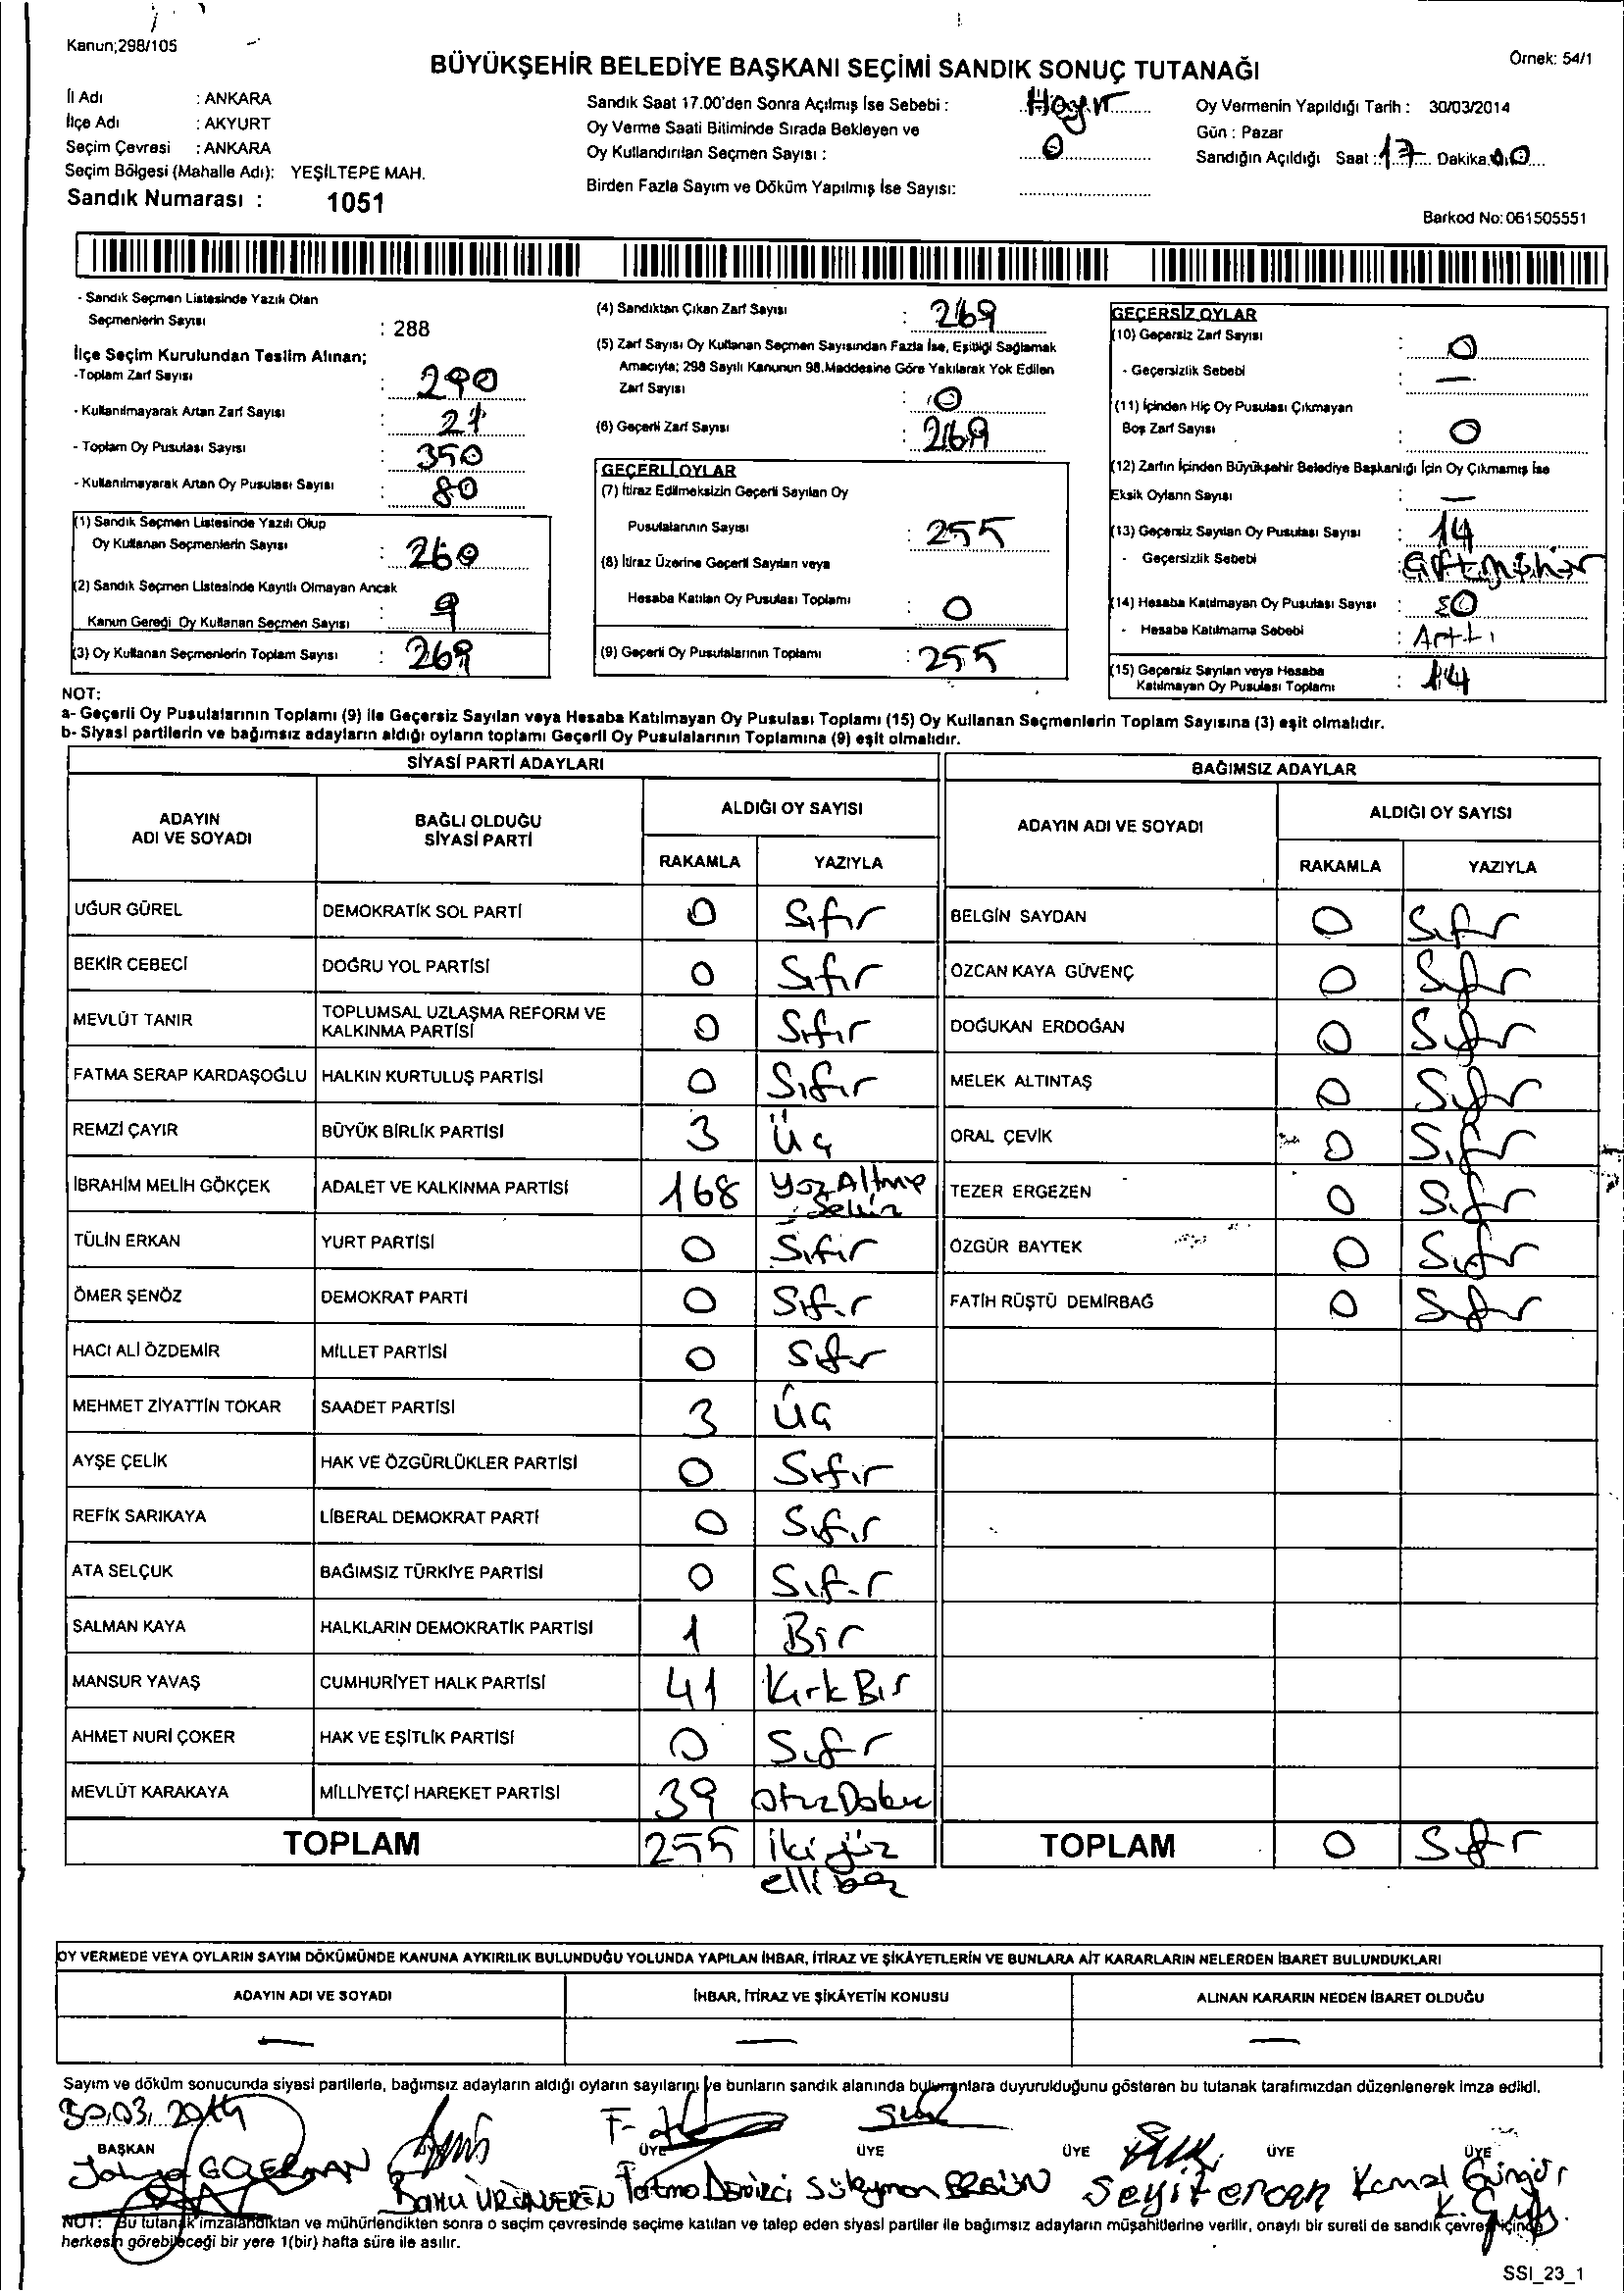 Kanun;298/105
Örnek: 54/1
BÜYÜKŞEHİR BELEDİYE BAŞKANI SEÇİMİ SANDIK SONUÇ TUTANAĞI
İl Adı : ANKARA
İlçe Adı : AKYURT
Seçim Çevresi : ANKARA
Seçim Bölgesi (Mahalle Adı): YEŞİLTEPE MAH.
Sandık Numarası : 1051
Sandık Saat 17.00'den Sonra Açılmış İse Sebebi : Hayır
Oy Verme Saati Bitiminde Sırada Bekleyen ve
Oy Kullandırılan Seçmen Sayısı : 0
Birden Fazla Sayım ve Döküm Yapılmış İse Sayısı:
Oy Vermenin Yapıldığı Tarih : 30/03/2014
Gün : Pazar
Sandığın Açıldığı Saat : 17 Dakika 00
Barkod No: 061505551
- Sandık Seçmen Listesinde Yazılı Olan
Seçmenlerin Sayısı : 288
İlçe Seçim Kurulundan Teslim Alınan;
-Toplam Zarf Sayısı : 290
- Kullanılmayarak Artan Zarf Sayısı : 21
- Toplam Oy Pusulası Sayısı : 350
- Kullanılmayarak Artan Oy Pusulası Sayısı : 80
(1) Sandık Seçmen Listesinde Yazılı Olup
Oy Kullanan Seçmenlerin Sayısı : 260
(2) Sandık Seçmen Listesinde Kayıtlı Olmayan Ancak
Kanun Gereği Oy Kullanan Seçmen Sayısı : 9
(3) Oy Kullanan Seçmenlerin Toplam Sayısı : 269
(4) Sandıktan Çıkan Zarf Sayısı : 269
(5) Zarf Sayısı Oy Kullanan Seçmen Sayısından Fazla İse, Eşitliği Sağlamak
Amacıyla; 298 Sayılı Kanunun 98.Maddesine Göre Yakılarak Yok Edilen
Zarf Sayısı : 0
(6) Geçerli Zarf Sayısı : 269
GEÇERLİ OYLAR
(7) İtiraz Edilmeksizin Geçerli Sayılan Oy
Pusulalarının Sayısı : 255
(8) İtiraz Üzerine Geçerli Sayılan veya
Hesaba Katılan Oy Pusulası Toplamı : 0
(9) Geçerli Oy Pusulalarının Toplamı : 255
GEÇERSİZ OYLAR
(10) Geçersiz Zarf Sayısı : 0
- Geçersizlik Sebebi : —
(11) İçinden Hiç Oy Pusulası Çıkmayan
Boş Zarf Sayısı : 0
(12) Zarfın İçinden Büyükşehir Belediye Başkanlığı İçin Oy Çıkmamış İse
Eksik Oyların Sayısı : —
(13) Geçersiz Sayılan Oy Pusulası Sayısı : 14
- Geçersizlik Sebebi :
(14) Hesaba Katılmayan Oy Pusulası Sayısı : 80
- Hesaba Katılmama Sebebi : Arttı
(15) Geçersiz Sayılan veya Hesaba
Katılmayan Oy Pusulası Toplamı : 14
NOT:
a- Geçerli Oy Pusulalarının Toplamı (9) ile Geçersiz Sayılan veya Hesaba Katılmayan Oy Pusulası Toplamı (15) Oy Kullanan Seçmenlerin Toplam Sayısına (3) eşit olmalıdır.
b- Siyasi partilerin ve bağımsız adayların aldığı oyların toplamı Geçerli Oy Pusulalarının Toplamına (9) eşit olmalıdır.
SİYASİ PARTİ ADAYLARI
ADAYIN ADI VE SOYADI
BAĞLI OLDUĞU SİYASİ PARTİ
ALDIĞI OY SAYISI
RAKAMLA YAZIYLA
UĞUR GÜREL DEMOKRATİK SOL PARTİ 0 Sıfır
BEKİR CEBECİ DOĞRU YOL PARTİSİ 0 Sıfır
MEVLÜT TANIR TOPLUMSAL UZLAŞMA REFORM VE KALKINMA PARTİSİ 0 Sıfır
FATMA SERAP KARDAŞOĞLU HALKIN KURTULUŞ PARTİSİ 0 Sıfır
REMZİ ÇAYIR BÜYÜK BİRLİK PARTİSİ 3 Üç
İBRAHİM MELİH GÖKÇEK ADALET VE KALKINMA PARTİSİ 168 Yüz Altmış Sekiz
TÜLİN ERKAN YURT PARTİSİ 0 Sıfır
ÖMER ŞENÖZ DEMOKRAT PARTİ 0 Sıfır
HACI ALİ ÖZDEMİR MİLLET PARTİSİ 0 Sıfır
MEHMET ZİYATTİN TOKAR SAADET PARTİSİ 3 Üç
AYŞE ÇELİK HAK VE ÖZGÜRLÜKLER PARTİSİ 0 Sıfır
REFİK SARIKAYA LİBERAL DEMOKRAT PARTİ 0 Sıfır
ATA SELÇUK BAĞIMSIZ TÜRKİYE PARTİSİ 0 Sıfır
SALMAN KAYA HALKLARIN DEMOKRATİK PARTİSİ 1 Bir
MANSUR YAVAŞ CUMHURİYET HALK PARTİSİ 41 Kırk Bir
AHMET NURİ ÇOKER HAK VE EŞİTLİK PARTİSİ 0 Sıfır
MEVLÜT KARAKAYA MİLLİYETÇİ HAREKET PARTİSİ 39 Otuz Dokuz
TOPLAM 255 İki yüz elli beş
BAĞIMSIZ ADAYLAR
ADAYIN ADI VE SOYADI
ALDIĞI OY SAYISI
RAKAMLA YAZIYLA
BELGİN SAYDAN 0 Sıfır
ÖZCAN KAYA GÜVENÇ 0 Sıfır
DOĞUKAN ERDOĞAN 0 Sıfır
MELEK ALTINTAŞ 0 Sıfır
ORAL ÇEVİK 0 Sıfır
TEZER ERGEZEN 0 Sıfır
ÖZGÜR BAYTEK 0 Sıfır
FATİH RÜŞTÜ DEMİRBAĞ 0 Sıfır
TOPLAM 0 Sıfır
OY VERMEDE VEYA OYLARIN SAYIM DÖKÜMÜNDE KANUNA AYKIRILIK BULUNDUĞU YOLUNDA YAPILAN İHBAR, İTİRAZ VE ŞİKÂYETLERİN VE BUNLARA AİT KARARLARIN NELERDEN İBARET BULUNDUKLARI
ADAYIN ADI VE SOYADI İHBAR, İTİRAZ VE ŞİKÂYETİN KONUSU ALINAN KARARIN NEDEN İBARET OLDUĞU
— — —
Sayım ve döküm sonucunda siyasi partilerle, bağımsız adayların aldığı oyların sayılarını ve bunların sandık alanında bulunanlara duyurulduğunu gösteren bu tutanak tarafımızdan düzenlenerek imza edildi.
30.03.2014
BAŞKAN ÜYE ÜYE ÜYE ÜYE ÜYE ÜYE
Fatma Demirci Süleyman Seyit ercan Kemal Güngör
NOT: Bu tutanak imzalandıktan ve mühürlendikten sonra o seçim çevresinde seçime katılan ve talep eden siyasi partiler ile bağımsız adayların müşahitlerine verilir, onaylı bir sureti de sandık çevresi içinde
herkesin görebileceği bir yere 1(bir) hafta süre ile asılır.
SSI_23_1